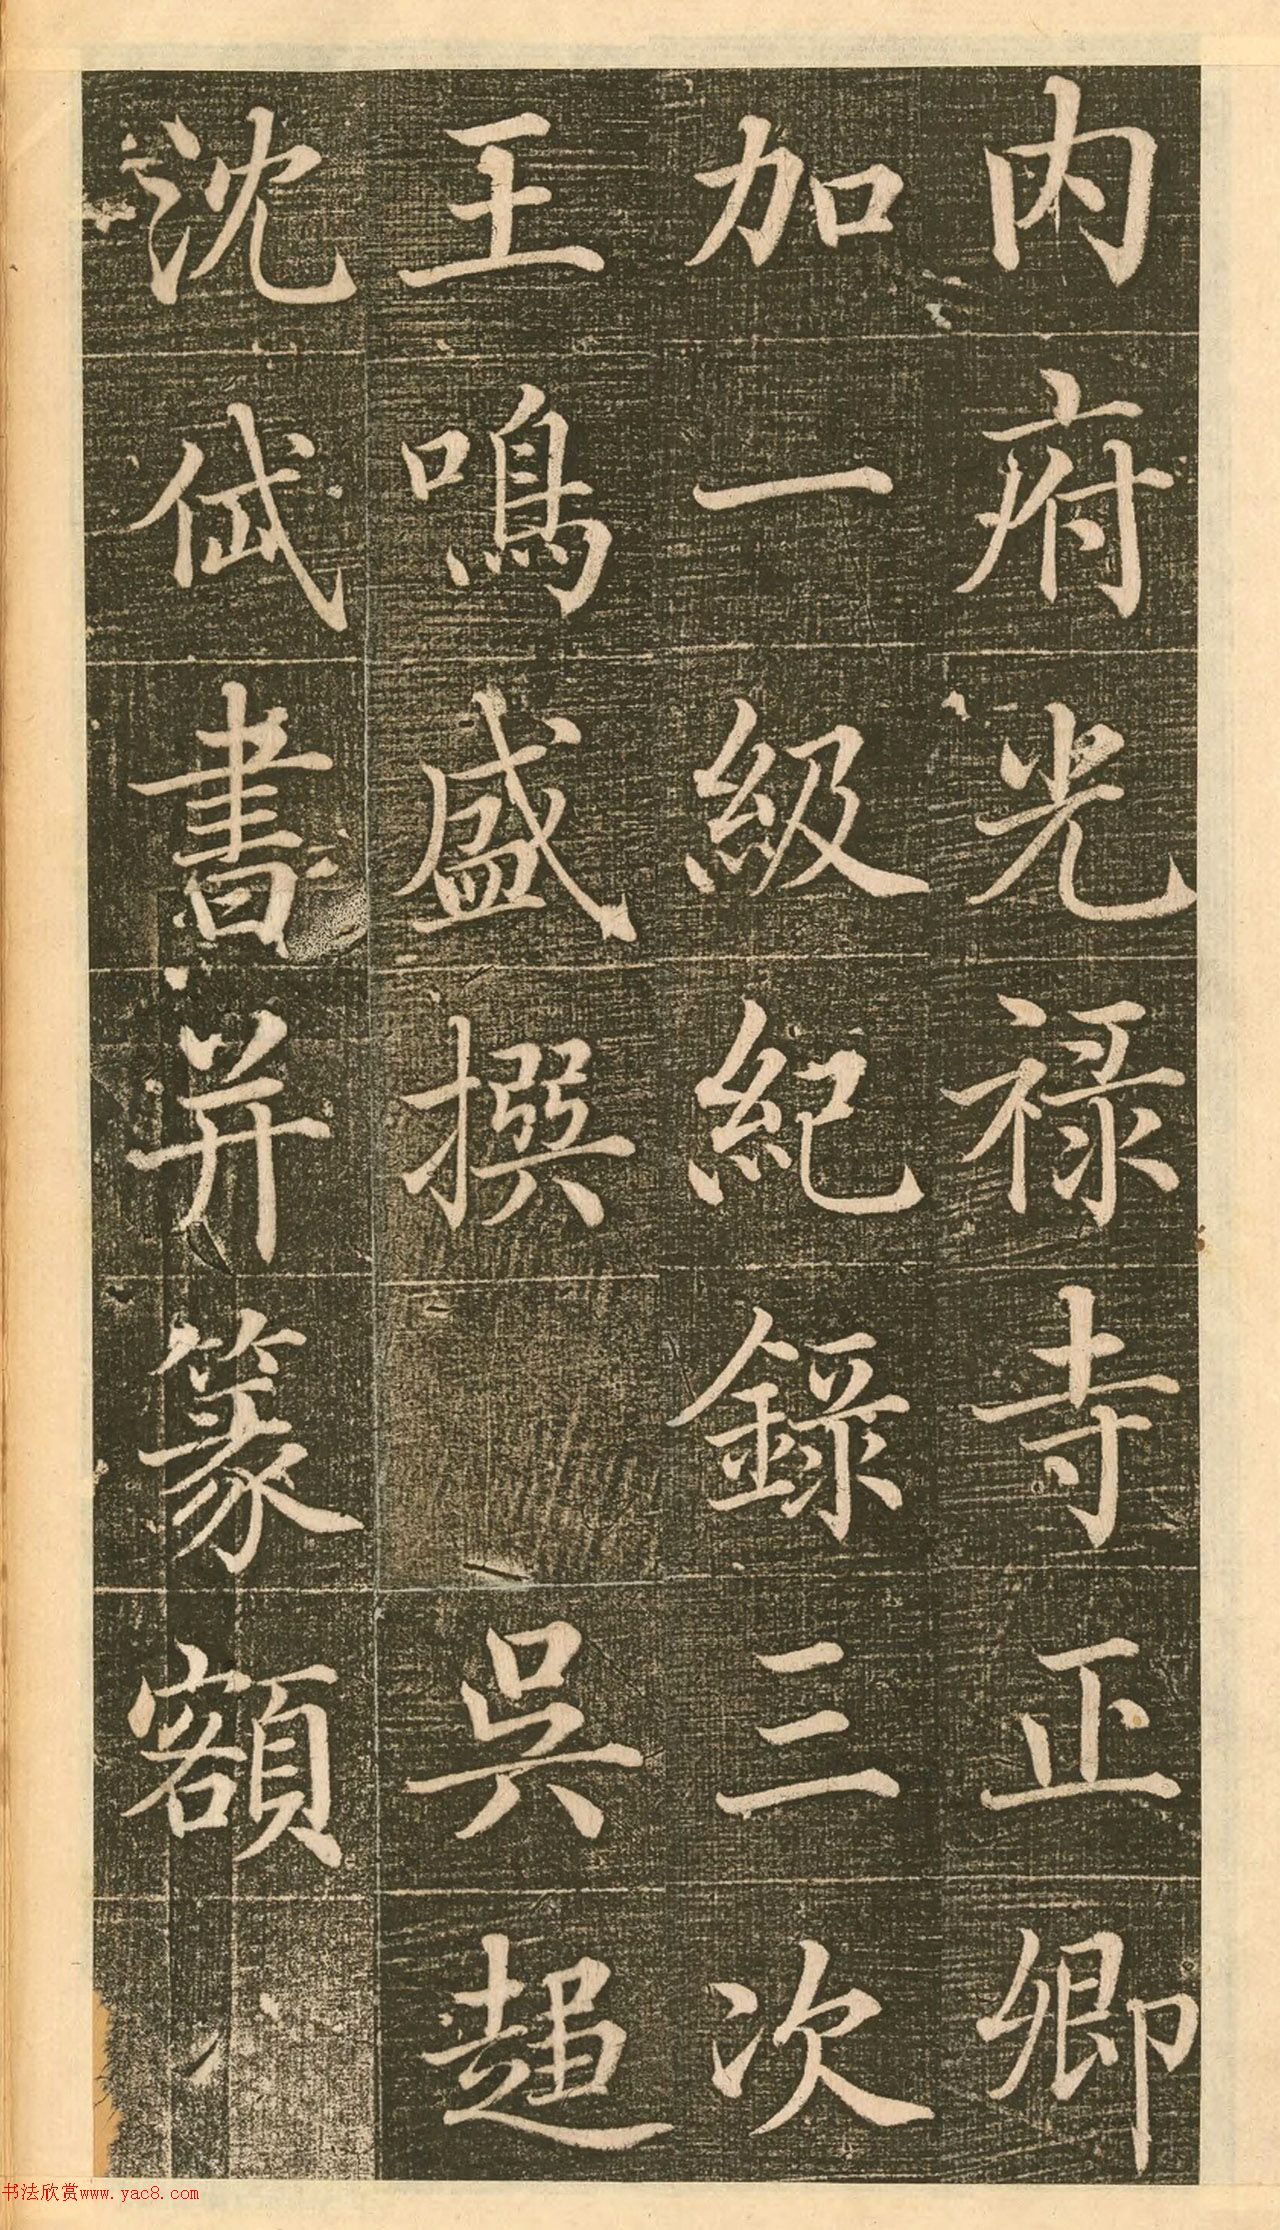 内府光禄寺正卿
加一級紀錄三次
王鳴盛撰 吳趨
沈岱書并篆額
书法欣赏www.yac8.com